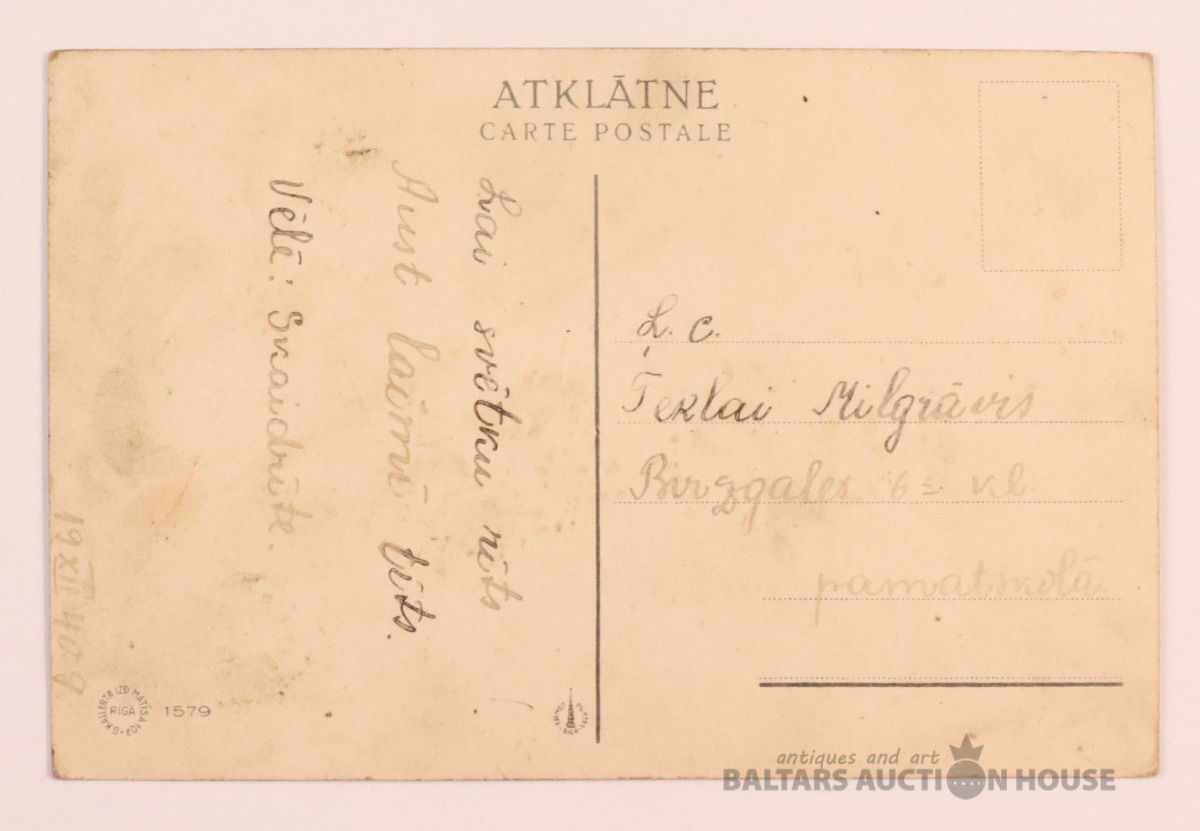 ATKLĀTNE
CARTE POSTALE
Lai svētku rīts
Aust laimī tīts.
Vēlē: Skaidrīte.
19 XII 40 g
Ļ. c.
Teklai Milgrāvis
Birzgales 6= kl
pamatskolā
G.KALLERTA IZD. MATĪSA 103
RĪGĀ
1579
antiques and art
BALTARS AUCTION HOUSE